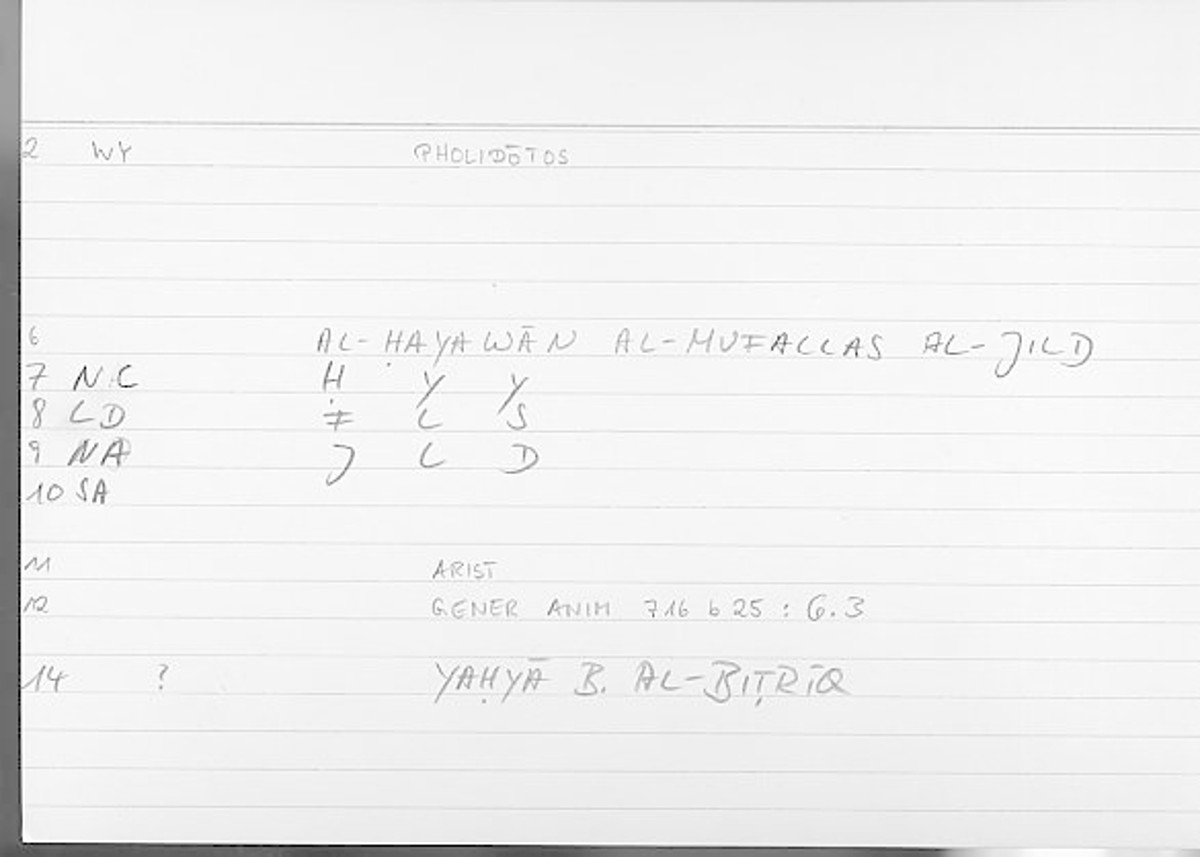 2 WY PHOLIDŌTOS
6 AL-ḤAYAWĀN AL-MUFALLAS AL-JILD
7 N.C Ḥ Y Y
8 LD F L S
9 NA J L D
10 SA
11 ARIST
12 GENER ANIM 716 b 25 : 6.3
14 ? YAḤYĀ B. AL-BIṬRĪQ